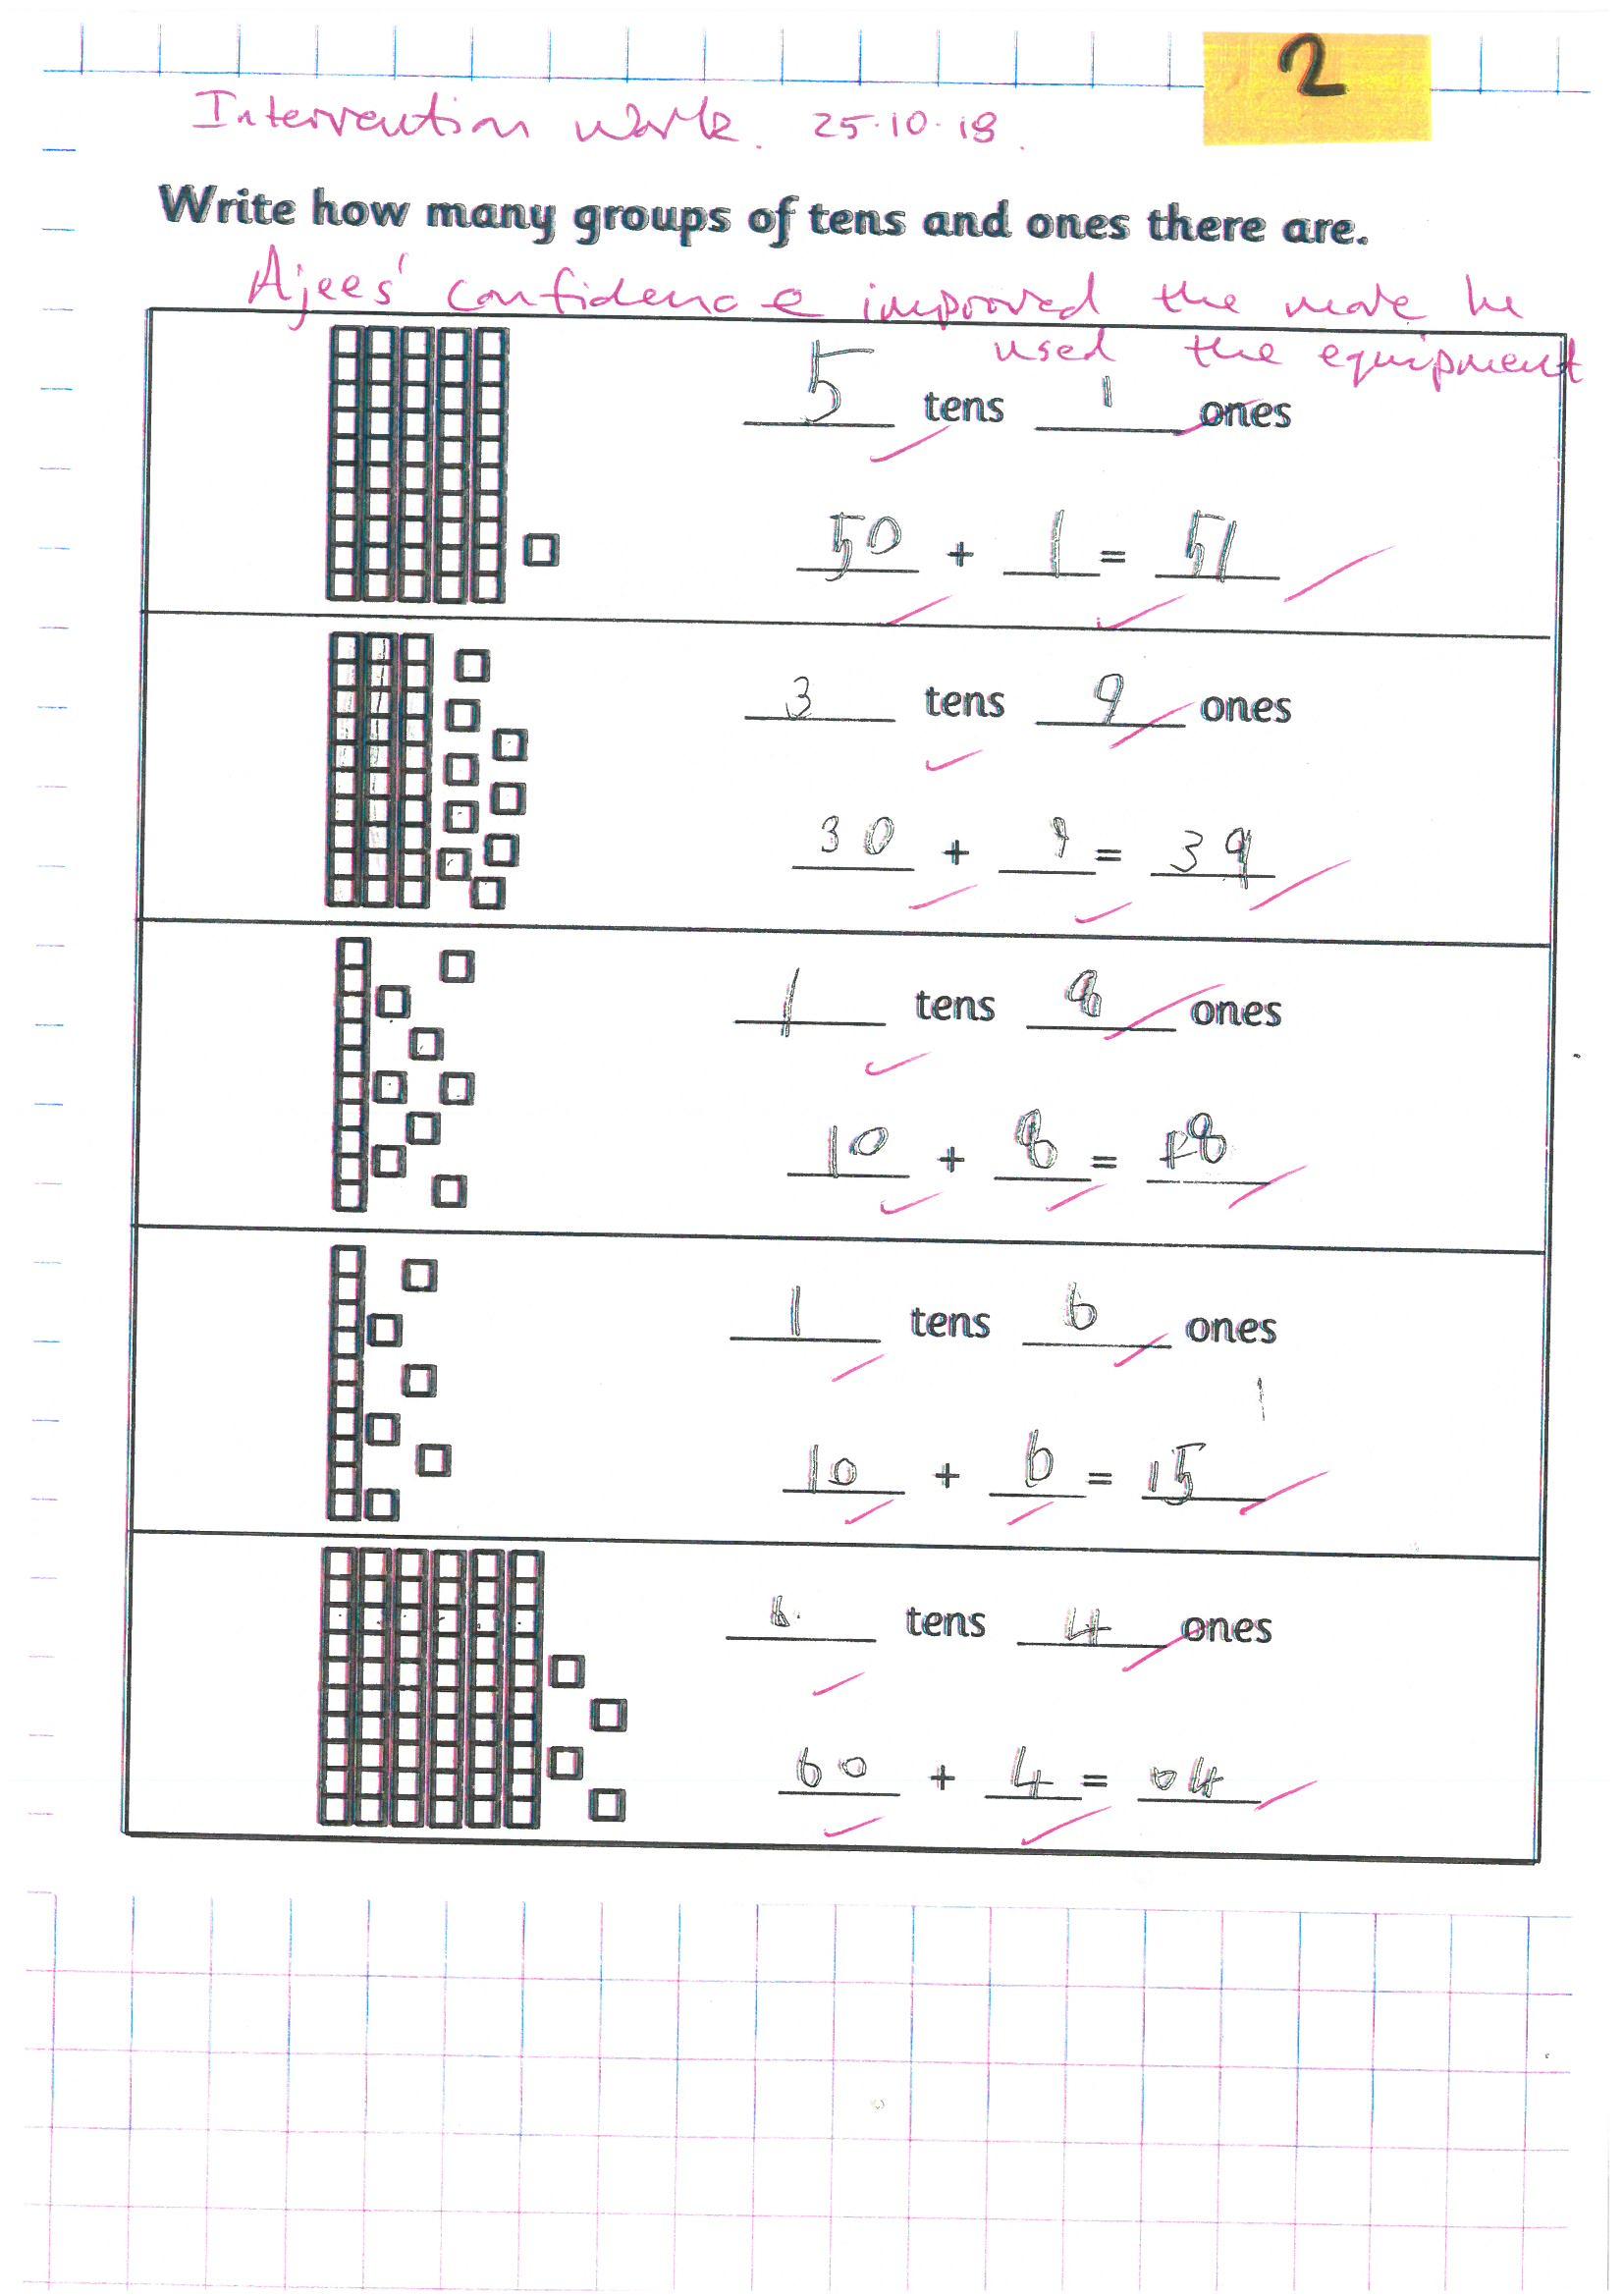 2
Intervention work. 25.10.18.
Write how many groups of tens and ones there are.
Ajees' confidence improved the more he
used the equipment
5 tens 1 ones
50 + 1 = 51
3 tens 9 ones
30 + 9 = 39
1 tens 8 ones
10 + 8 = 18
1 tens 6 ones
10 + 6 = 15
6 tens 4 ones
60 + 4 = 04